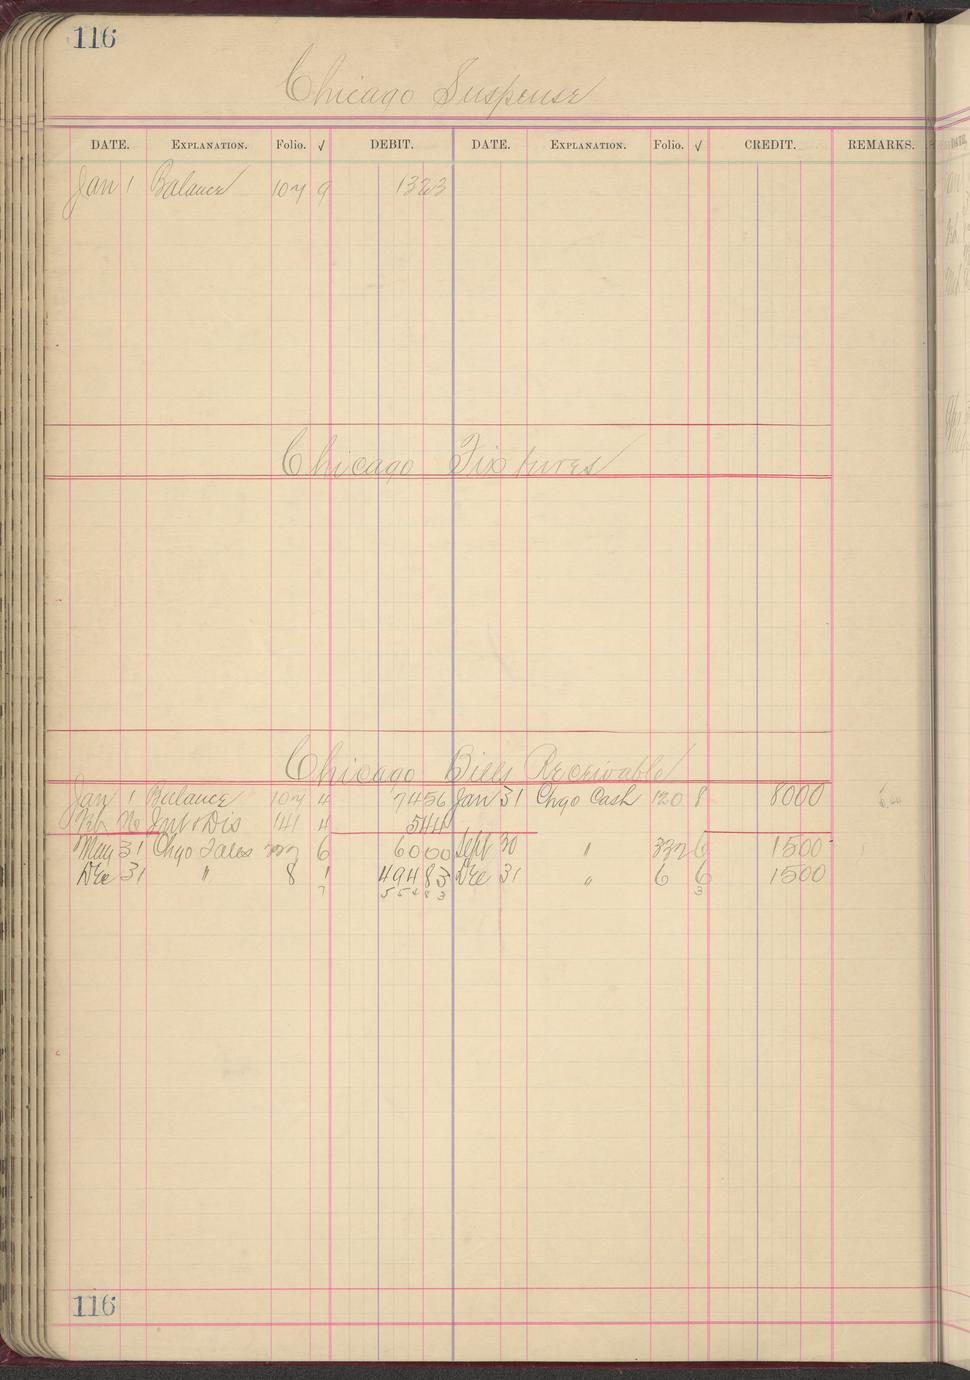 116
Chicago Suspense
DATE. EXPLANATION. Folio. √ DEBIT. DATE. EXPLANATION. Folio. √ CREDIT. REMARKS.
Jan 1 Balance 107 9 1323
Chicago Fixtures
Chicago Bills Receivable
Jan 1 Balance 107 4 7456 Jan 31 Chgo Cash 120 8 8000
Int & Dis 141 4 544
May 31 Chgo Sales 6 6000 Sept 30 " 332 6 1500
Dec 31 " 8 1 49483 Dec 31 " 6 6 1500
7 55483 3
116